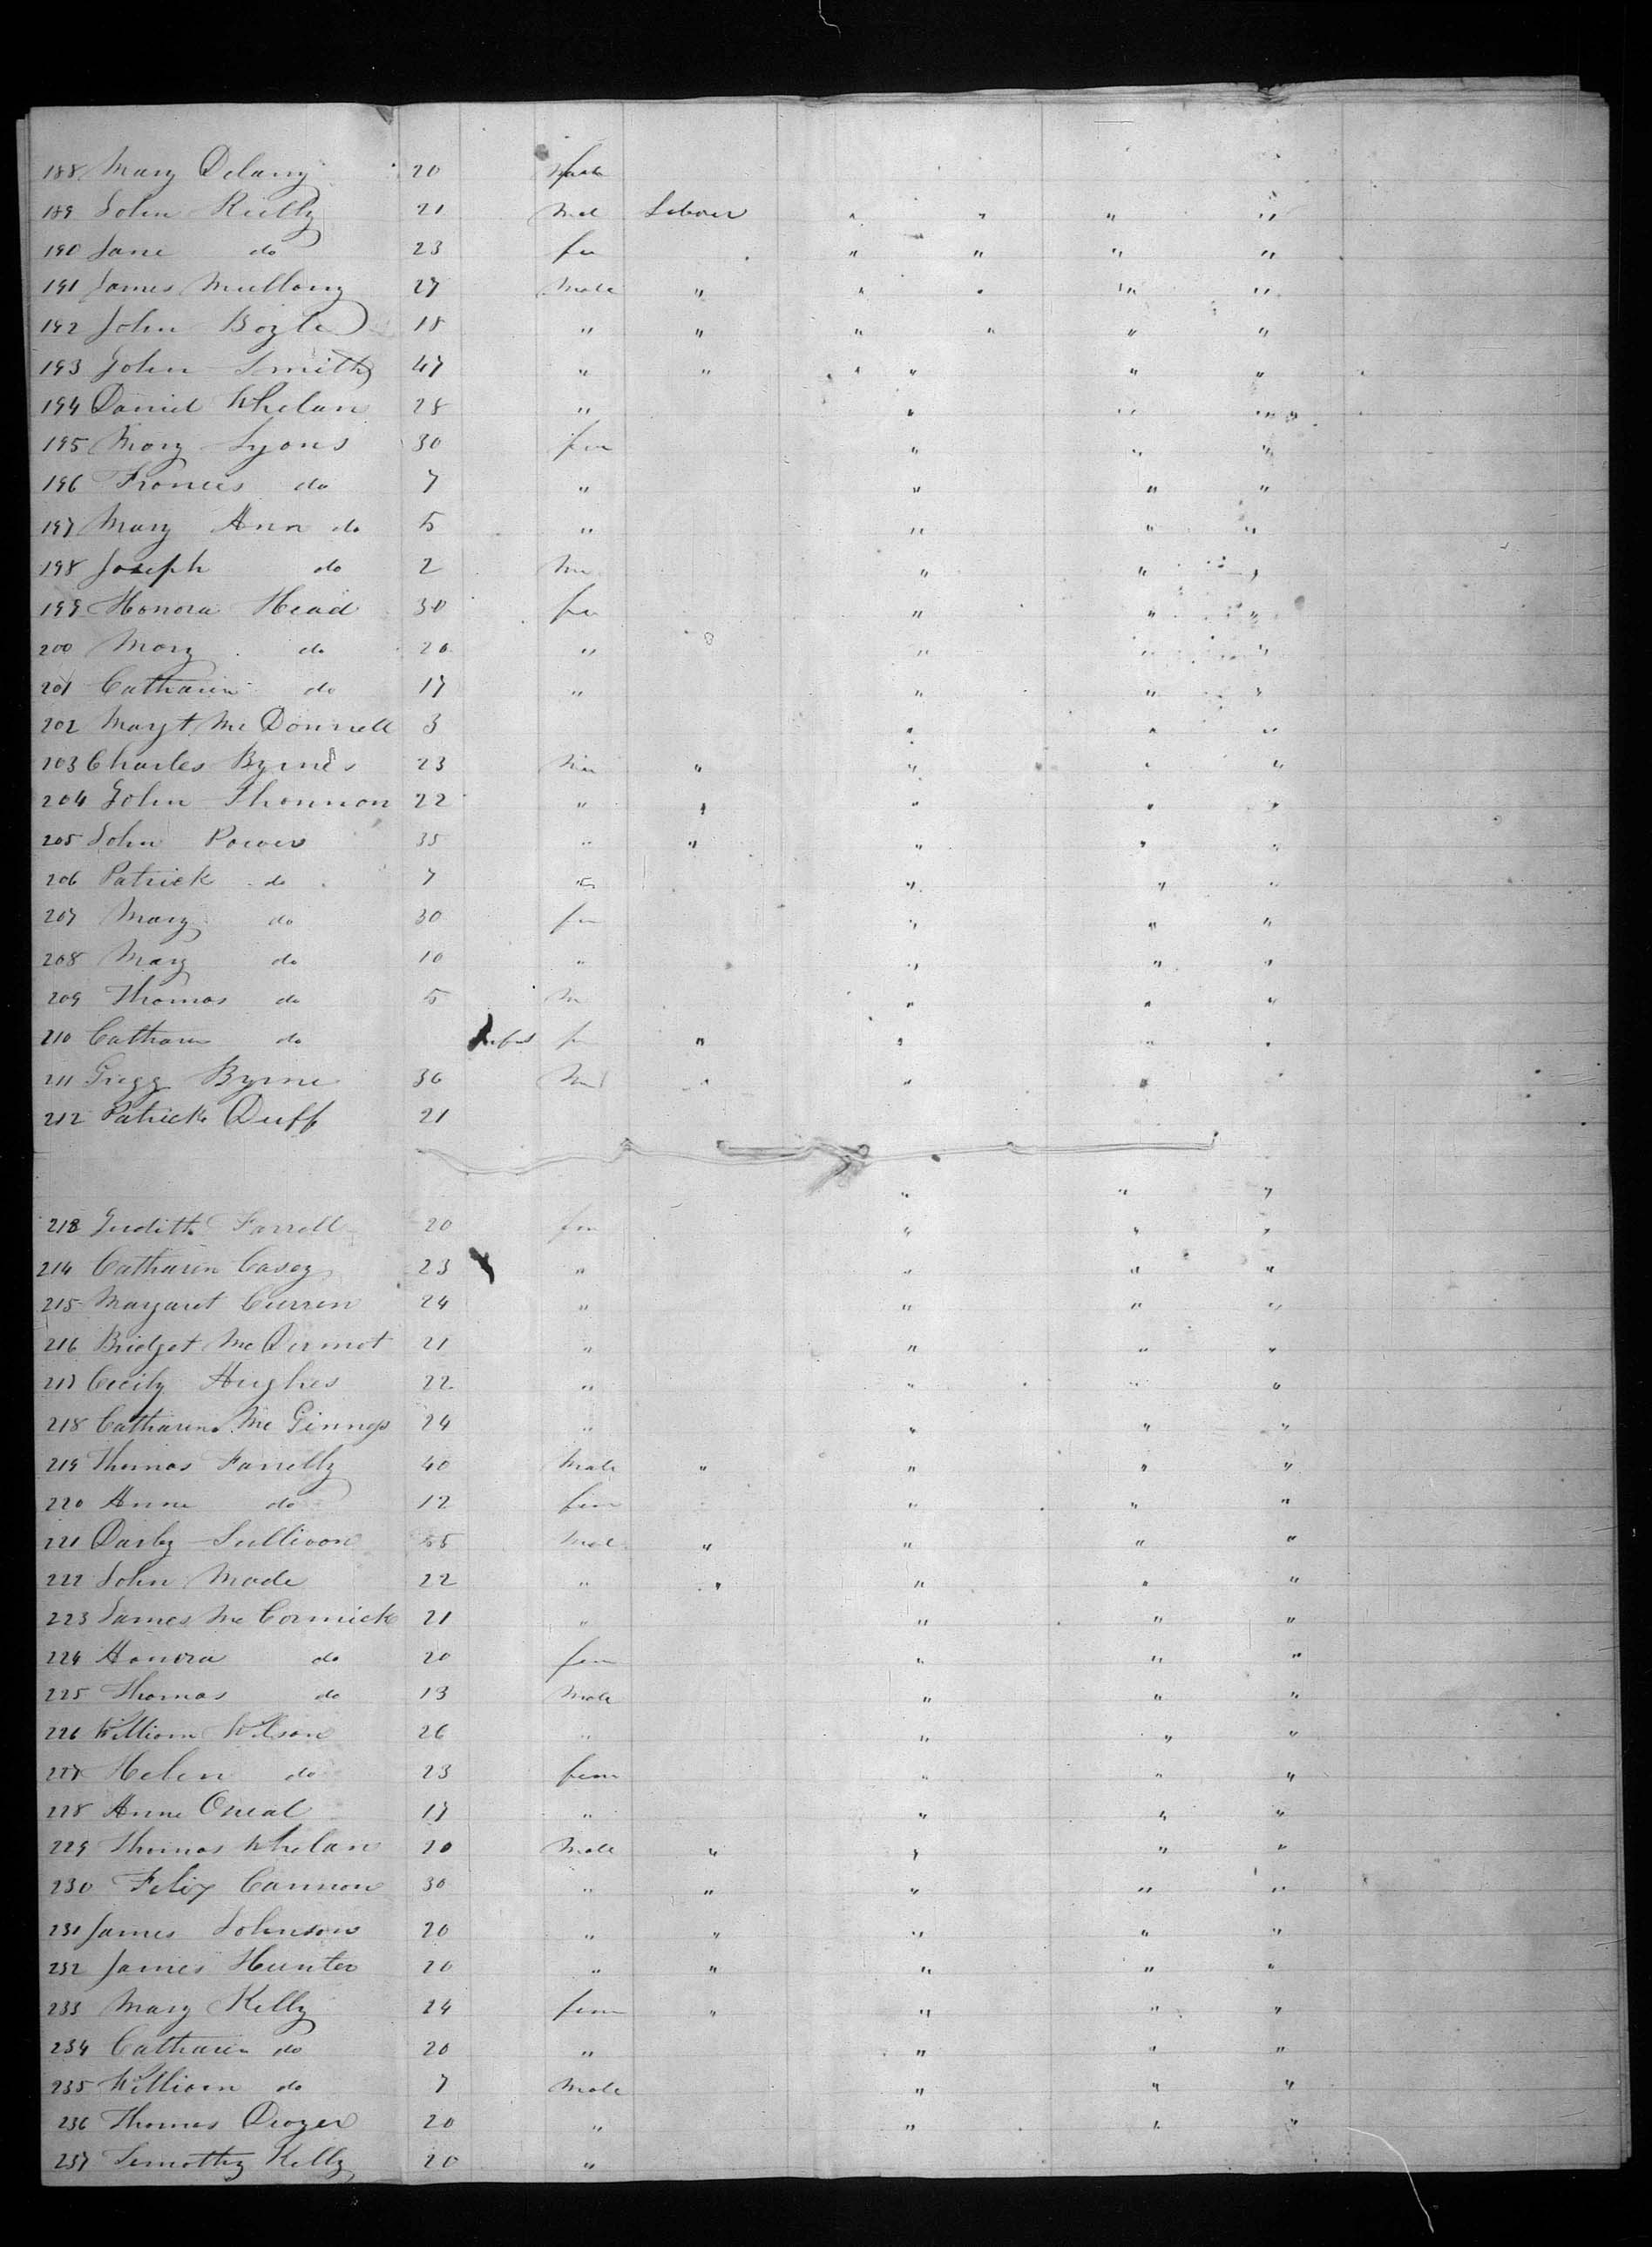 188 Mary Delany 20 fem
189 John Reilly 21 Mal Labour " " " "
190 Jane do 23 fem " " " "
191 James Mullany 27 Male " " " " "
192 John Boyle 18 " " " " " "
193 John Smith 47 " " " " " "
194 Daniel Whelan 28 " " " "
195 Mary Lyons 30 fem " " "
196 Frances do 7 " " " "
197 Mary Ann do 5 " " " "
198 Joseph do 2 Ma " " "
199 Honora Head 30 fem " " "
200 Mary do 26 " " " "
201 Catharin do 17 " " " "
202 Margt McDonnell 3 " " "
203 Charles Byrnes 23 Ma " " " "
204 John Shonnon 22 " " " " "
205 John Power 35 " " " " "
206 Patrick do 7 " " " "
207 Mary do 30 fem " " "
208 Mary do 10 " " " "
209 Thomas do 5 M " " "
210 Catharin do f " " " "
211 Gregg Byrne 36 Ma " " "
212 Patrick Duff 21
" " "
213 Judith Farrell 20 fem " " "
214 Catharin Casey 23 " " " "
215 Margaret Curren 24 " " " "
216 Bridget McDermot 21 " " " "
217 Cecily Hughes 22 " " " "
218 Catharine McGinness 24 " " " "
219 Thomas Farrelly 40 Male " " " "
220 Anne do 12 fem " " "
221 Darby Sullivan 55 Mal " " " "
222 John Made 22 " " " " "
223 James McCormick 21 " " " "
224 Honora do 20 fem " " "
225 Thomas do 13 Male " " "
226 William Wilson 26 " " " "
227 Helen do 23 fem " " "
228 Anne Oneal 17 " " " "
229 Thomas Whelan 20 Male " " " "
230 Felix Cannon 30 " " " " "
231 James Johnson 20 " " " " "
232 James Hunter 20 " " " " "
233 Mary Kelly 24 fem " " " "
234 Catharin do 20 " " " "
235 William do 7 Male " " "
236 Thomas Dwyer 20 " " " "
237 Timothy Kelly 20 "